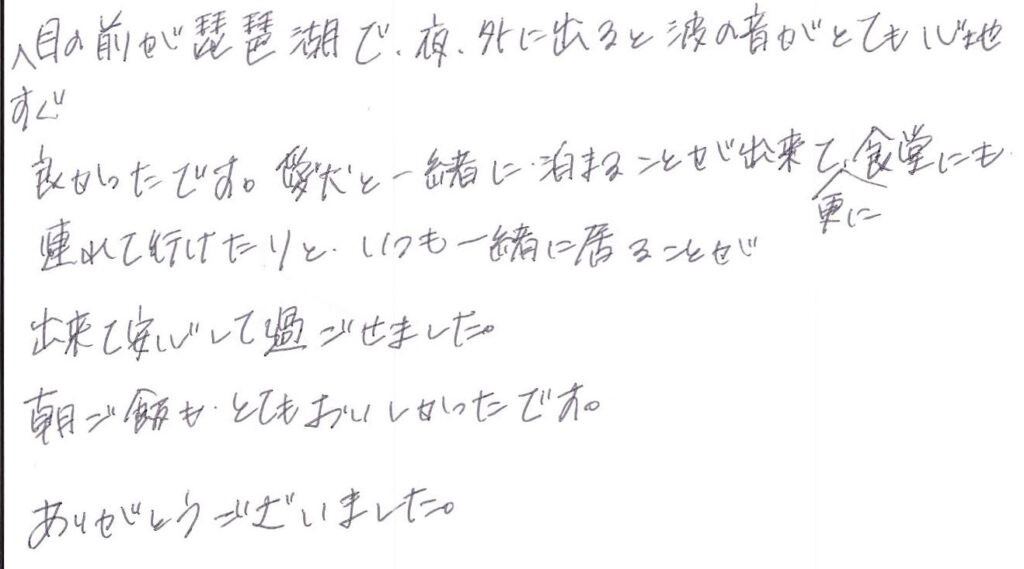 すぐ目の前が琵琶湖で、夜、外に出ると波の音がとても心地
良かったです。愛犬と一緒に泊まることが出来て、更に食堂にも
連れて行けたりと、いつも一緒に居ることが
出来て安心して過ごせました。
朝ご飯も、とてもおいしかったです。
ありがとうございました。